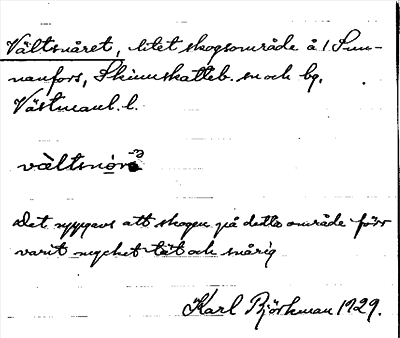 Vältsnåret, litet skogsområde å 1 Sun-
nanfors, Skinnskatteb. sn och bg,
Västmanl. l.
vàltsnórə
Det uppgavs att skogen på detta område förr
varit mycket tät och snårig
Karl Björkman 1929.